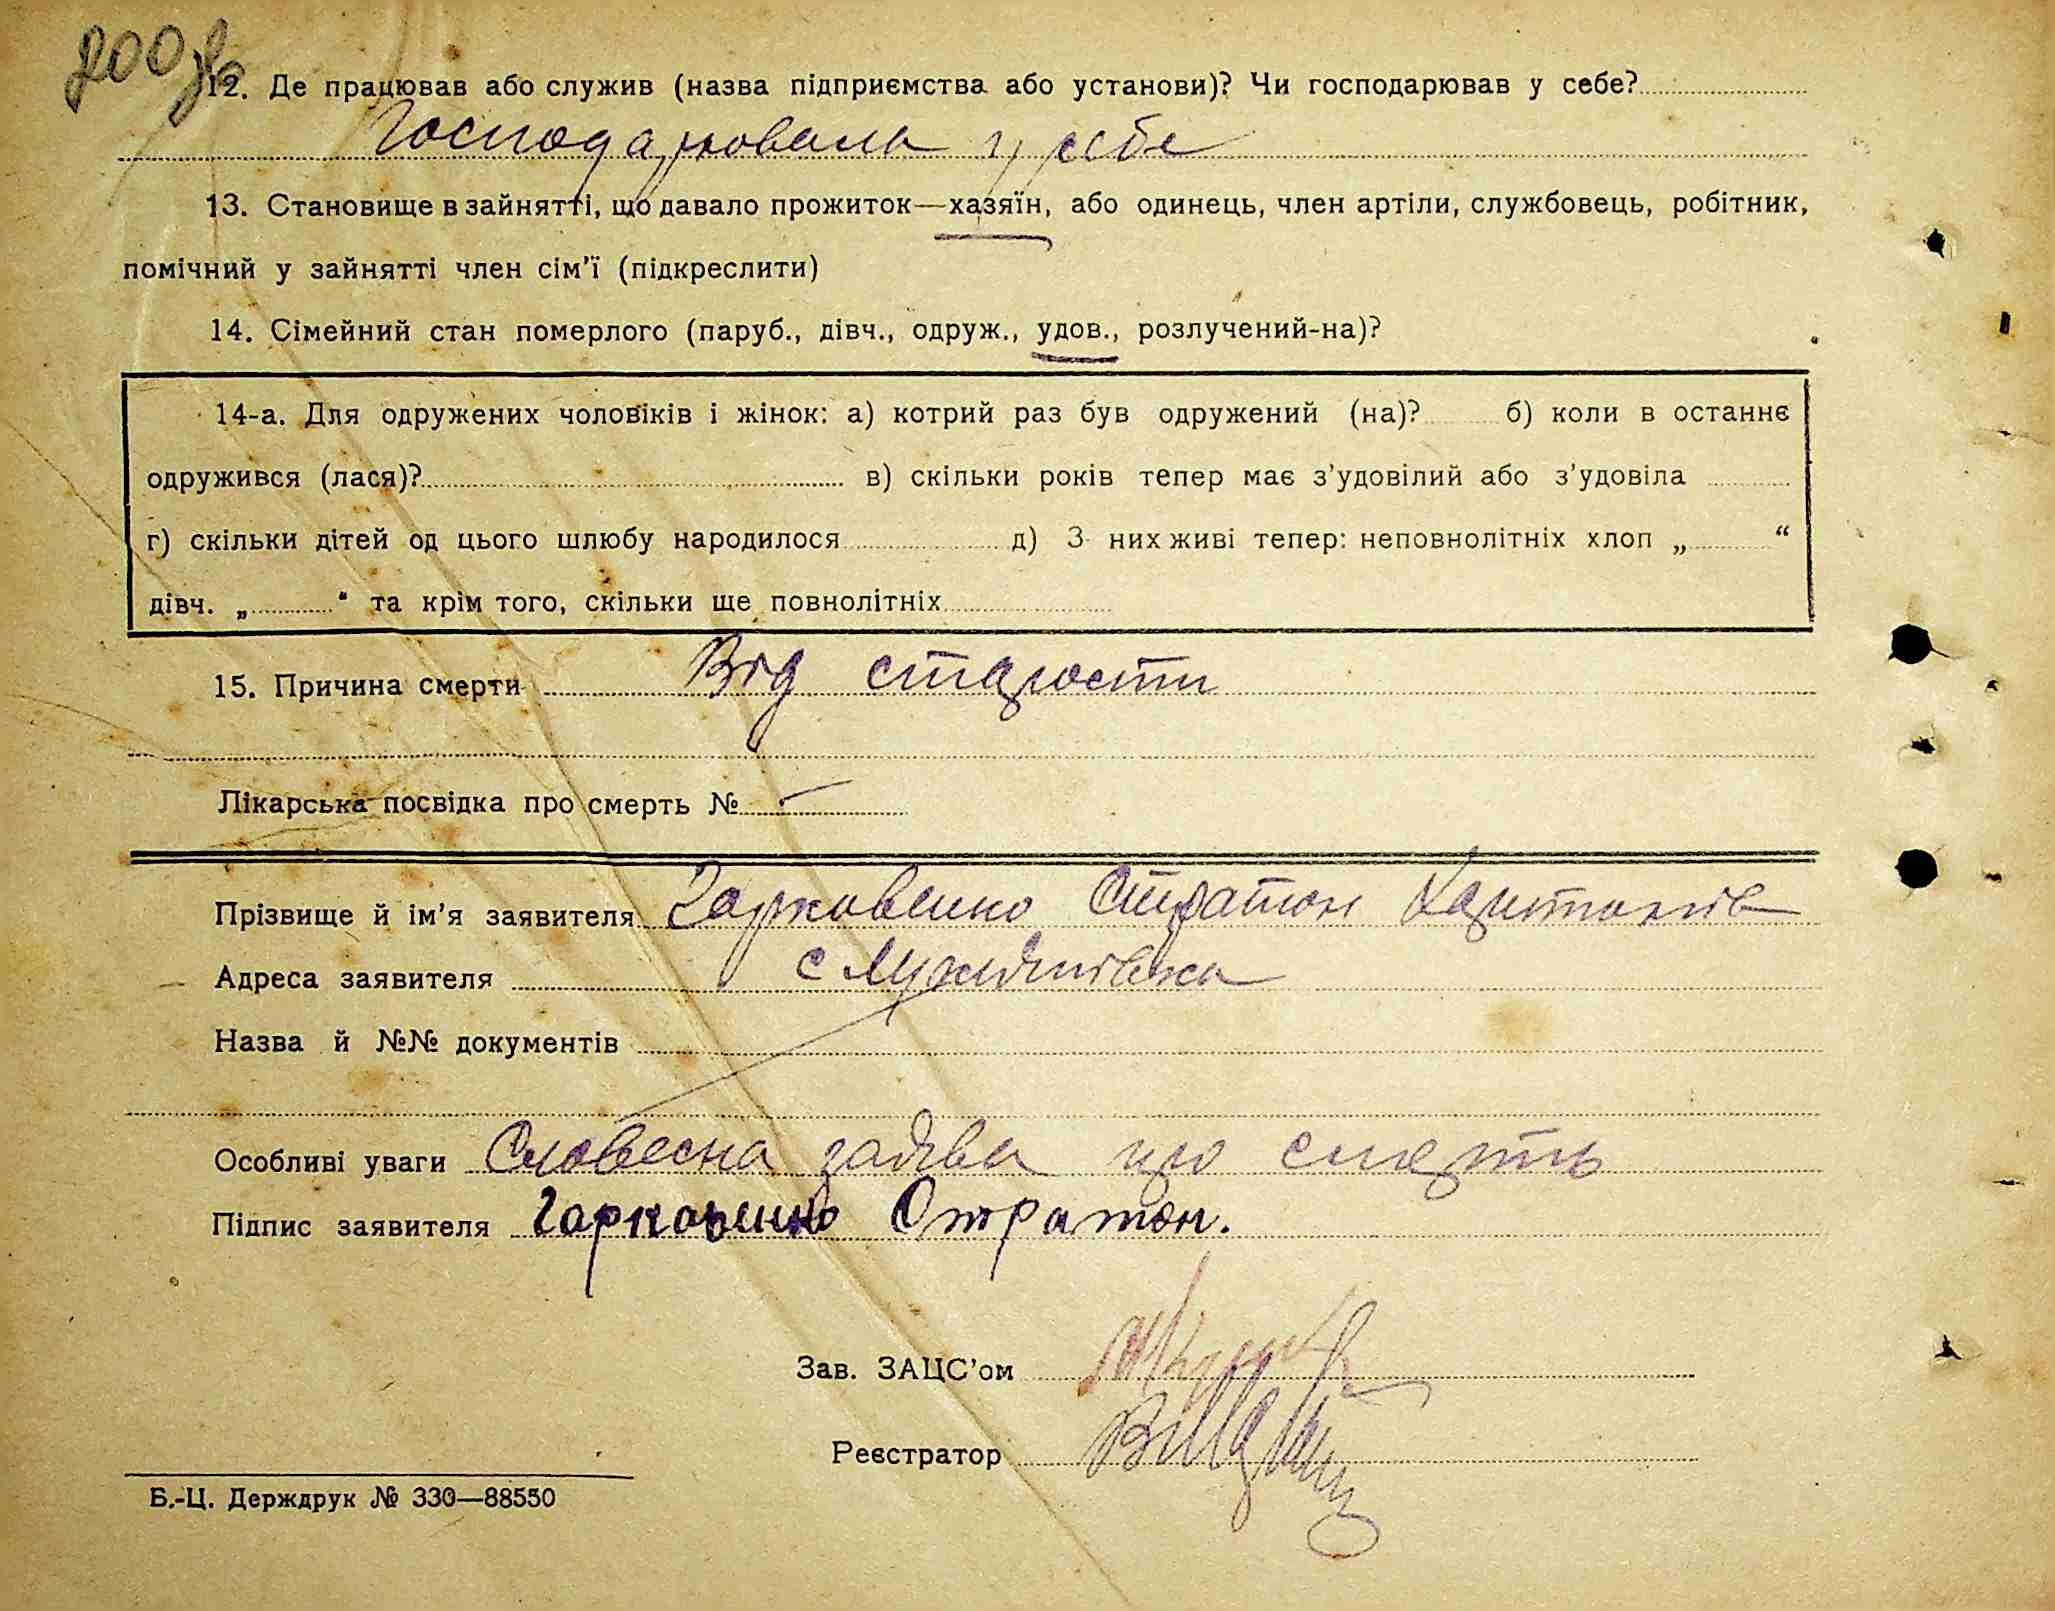 200 зв
12. Де працював або служив (назва підприємства або установи)? Чи господарював у себе?
Господарювала у себе
13. Становище в зайнятті, що давало прожиток—хазяїн, або одинець, член артіли, службовець, робітник,
помічний у зайнятті член сім'ї (підкреслити)
14. Сімейний стан померлого (паруб., дівч., одруж., удов., розлучений-на)?
14-а. Для одружених чоловіків і жінок: а) котрий раз був одружений (на)? б) коли в останнє
одружився (лася)? в) скільки років тепер має з'удовілий або з'удовіла
г) скільки дітей од цього шлюбу народилося д) З них живі тепер: неповнолітніх хлоп „ “
дівч. „ “ та крім того, скільки ще повнолітніх
15. Причина смерти Від старости
Лікарська посвідка про смерть № —
Прізвище й ім'я заявителя Гарковенко Стратон Харитонів
Адреса заявителя с
Назва й №№ документів
Особливі уваги Словесна заява про смерть
Підпис заявителя Гарковенко Стратон.
Зав. ЗАЦС'ом
Реєстратор
Б.-Ц. Держдрук № 330—88550